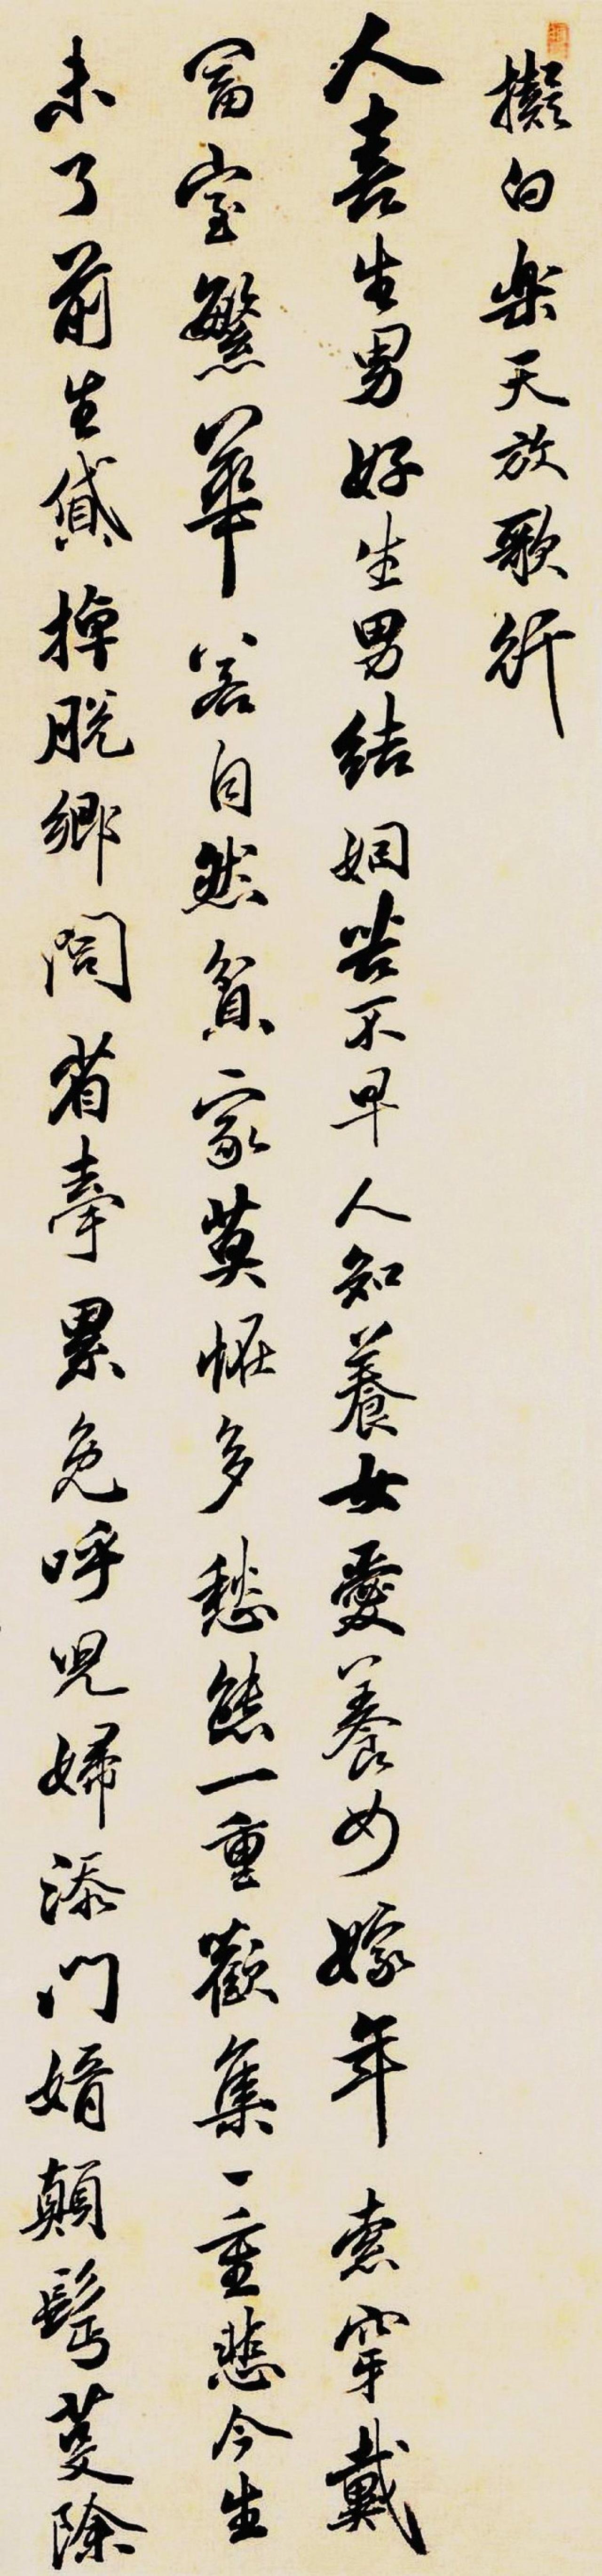 擬白樂天放歌行
人喜生男好生男結姻苦不早人知養女愛養女嫁年索穿戴
富室繁華若自然貧家莫怪多愁態一重歡集一重悲今生
未了前生貸掉脫鄉閭省牽累免呼兒婦添門婿顛髩莫除